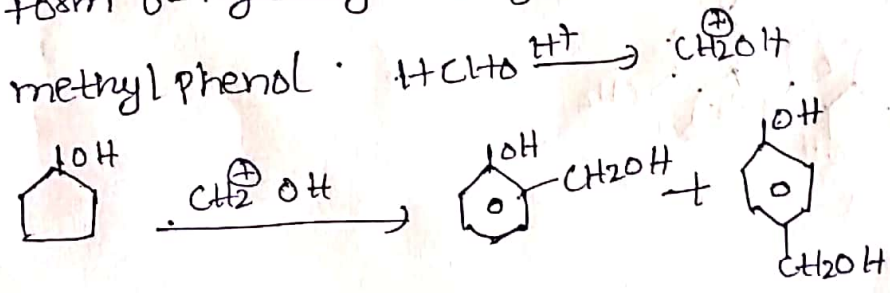 methyl phenol. HCHO H+ → ⊕CH2OH
OH CH2⊕ OH → OH -CH2OH + OH
CH2OH